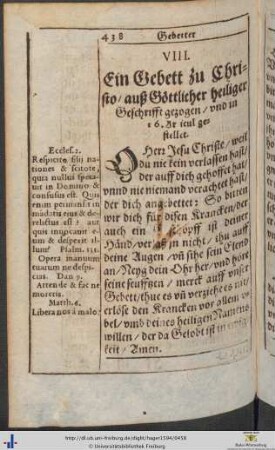 438 Gebetter
VIII.
Ein Gebett zu Chri-
sto/ auß Göttlicher heiliger
Geschrifft gezogen/ vnd in
16. Articul ge-
stellet.
O Herr Jesu Christe/ weil
du nie kein verlassen hast/
der auff dich gehoffet hat/
vnnd nie niemand verachtet hast/
der dich angebettet: So bitten
wir dich für disen Krancken/ der
auch ein geschöpff ist deiner
Händ/ verlaß jn nicht/ thu auff
deine Augen/ vn̄ sihe sein Elend
an/ Neyg dein Ohr her/ vnd höre
seine seufftzen/ merck auff vnser
Gebett/ thue es vn̄ verziehe es nit/
erlöse den Krancken vor allem v-
bel/ vmb deines heiligen Namens
willen/ der da Gelobt ist in ewig-
keit/ Amen.
Eccles. 2.
Respicite filij nati-
ones & scitote,
quia nullus spera-
uit in Domino &
confusus est. Quis
enim permansit in
mādatis eius & de-
relictus est? aut
quis inuocauit e-
um & despexit il-
lum? Psalm. 131.
Opera manuum
tuarum ne despi-
cias. Dan. 9.
Attende & fac ne
moreris.
Matth. 6.
Libera nos à malo.
http://dl.ub.uni-freiburg.de/diglit/hager1594/0456
© Universitätsbibliothek Freiburg